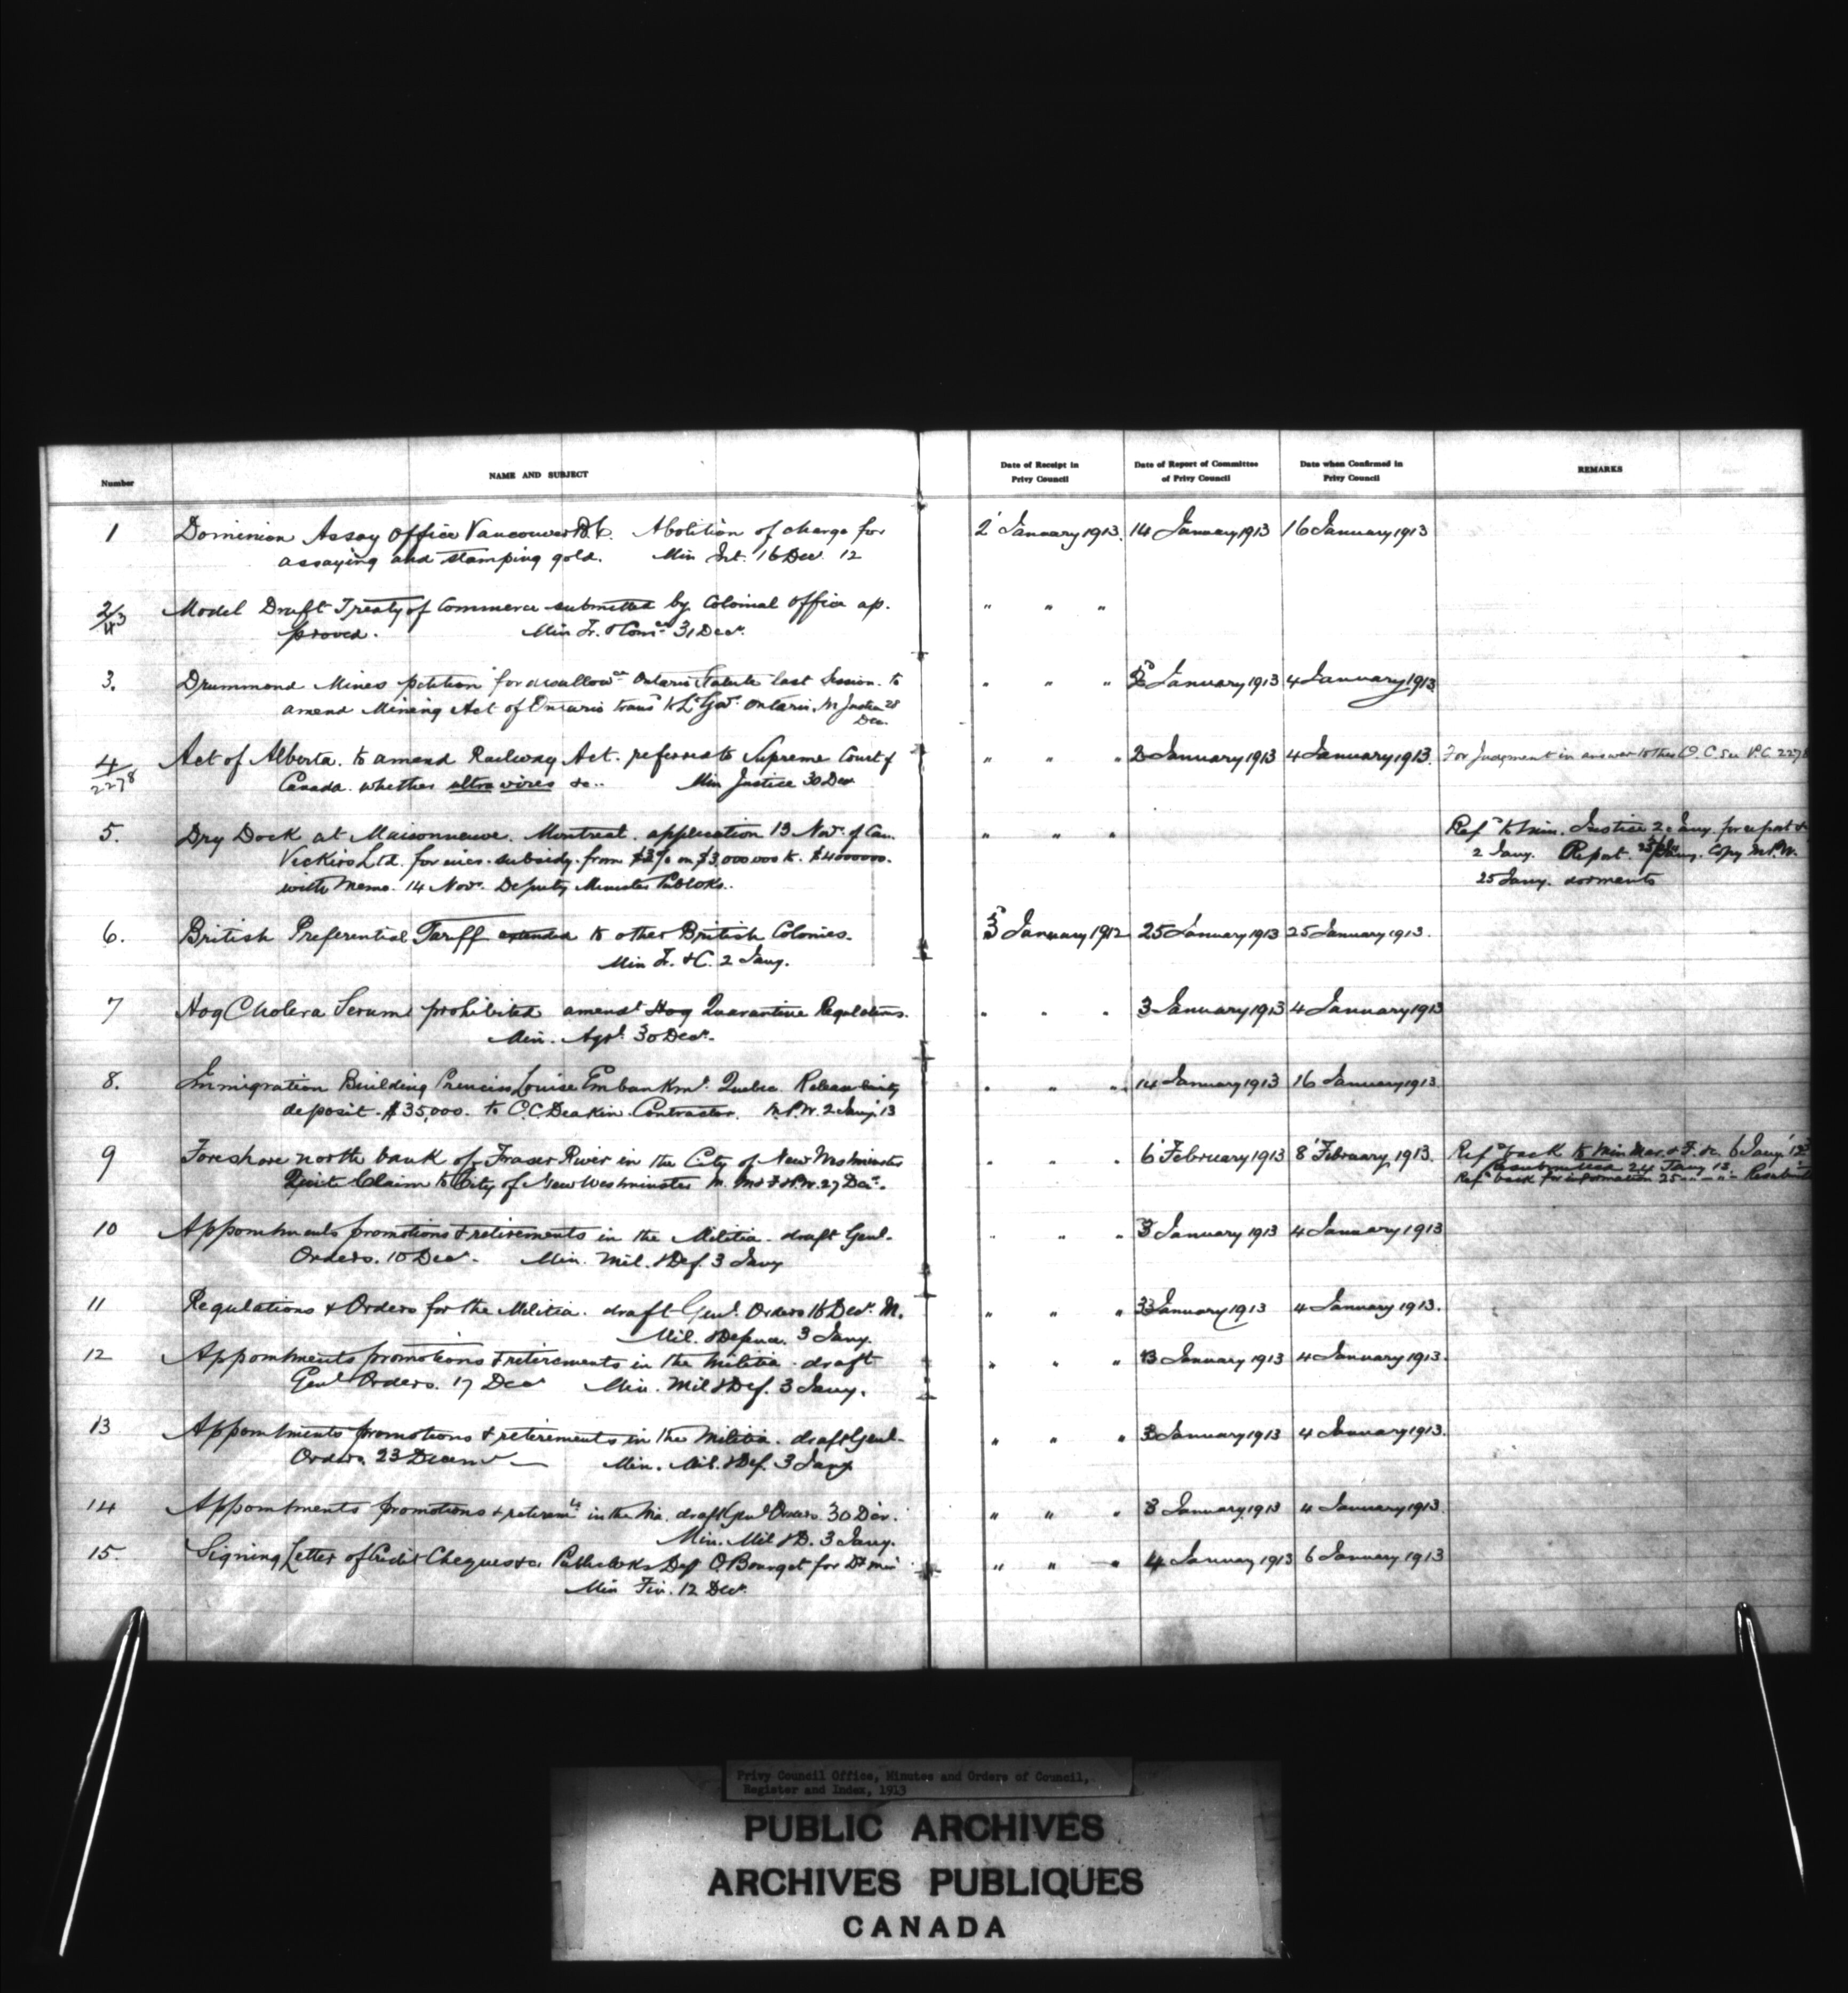 Number NAME AND SUBJECT Date of Receipt in Privy Council Date of Report of Committee of Privy Council Date when Confirmed in Privy Council REMARKS
1 Dominion Assay Office Vancouver B.C. Abolition of charge for 2 January 1913. 14 January 1913 16 January 1913
assaying and stamping gold. Min Int. 16 Dec. 12
2/43 Model Draft Treaty of Commerce submitted by Colonial Office ap. " " "
proved. Min Tr. & Comce 31 Decr.
3. Drummond Mines petition for disallowce Ontario Statute last Session to " " " 2 January 1913 4 January 1913
amend Mining Act of Ontario trans to Lt Govr. Ontario. M Justice 28
Dec.
4/2278 Act of Alberta to amend Railway Act. referred to Supreme Court of " " " 2 January 1913 4 January 1913. For Judgment in answer to this O.C. See P.C. 2278
Canada whether ultra vires &c.. Min Justice 30 Decr
5. Dry Dock at Maisonneuve. Montreal. application 13 Novr. of Can. " " " Refd to Min. Justice 2 Jany. for report &
Vickers Ltd. for incr. subsidy from 3% on $3,000,000 to $4000000. 2 Jany. Report Jany. Copy M.P.W.
with memo. 14 Novr. Deputy Minister Pub Wks.. 25 Jany. dorments
6. British Preferential Tariff extended to other British Colonies. 3 January 1912 25 January 1913 25 January 1913.
Min Tr. & C. 2 Jany.
7 Hog Cholera Serum prohibited amendt Hog Quarantine Regulations. " " " 3 January 1913 4 January 1913
Min. Agrl. 30 Decr.
8. Immigration Building Princess Louise Embankmt. Quebec. Release " " " 14 January 1913 16 January 1913.
deposit. $35,000. to C.C. Deakin Contractor. M.P.W. 2 Jany 13
9 Foreshore north bank of Fraser River in the City of New Westminster " " " 6 February 1913 8 February 1913. Refd back to Min Mar. & F. &c 6 Jany 13
Quit Claim to City of New Westminster M. M & F & P.W. 27 Decr. Resubmitted 24 Jany 13.
Refd back for information 25 " "
10 Appointments promotions & retirements in the Militia. draft Genl. " " " 3 January 1913 4 January 1913
Orders. 10 Decr. Min. Mil. & Def. 3 Jany
11 Regulations & Orders for the Militia. draft Genl. Orders 16 Decr. M. " " " 3 January 1913 4 January 1913.
Mil. & Defence. 3 Jany.
12 Appointments promotions & retirements in the Militia. draft " " " 3 January 1913 4 January 1913.
Genl Orders. 17 Decr Min. Mil & Def. 3 Jany.
13 Appointments promotions & retirements in the Militia. draft Genl. " " " 3 January 1913 4 January 1913.
Orders. 23 Decemr Min. Mil. & Def. 3 Jany
14 Appointments promotions & retiremts in the Mia. draft Genl Orders. 30 Decr. " " " 3 January 1913 4 January 1913.
Min. Mil & D. 3 Jany.
15. Signing Letter of Credit Cheques &c Public Wks Dept O. Bourget for Dy Min " " " 4 January 1913 6 January 1913
Min Fin. 12 Decr.
Privy Council Office, Minutes and Orders of Council,
Register and Index, 1913
PUBLIC ARCHIVES
ARCHIVES PUBLIQUES
CANADA